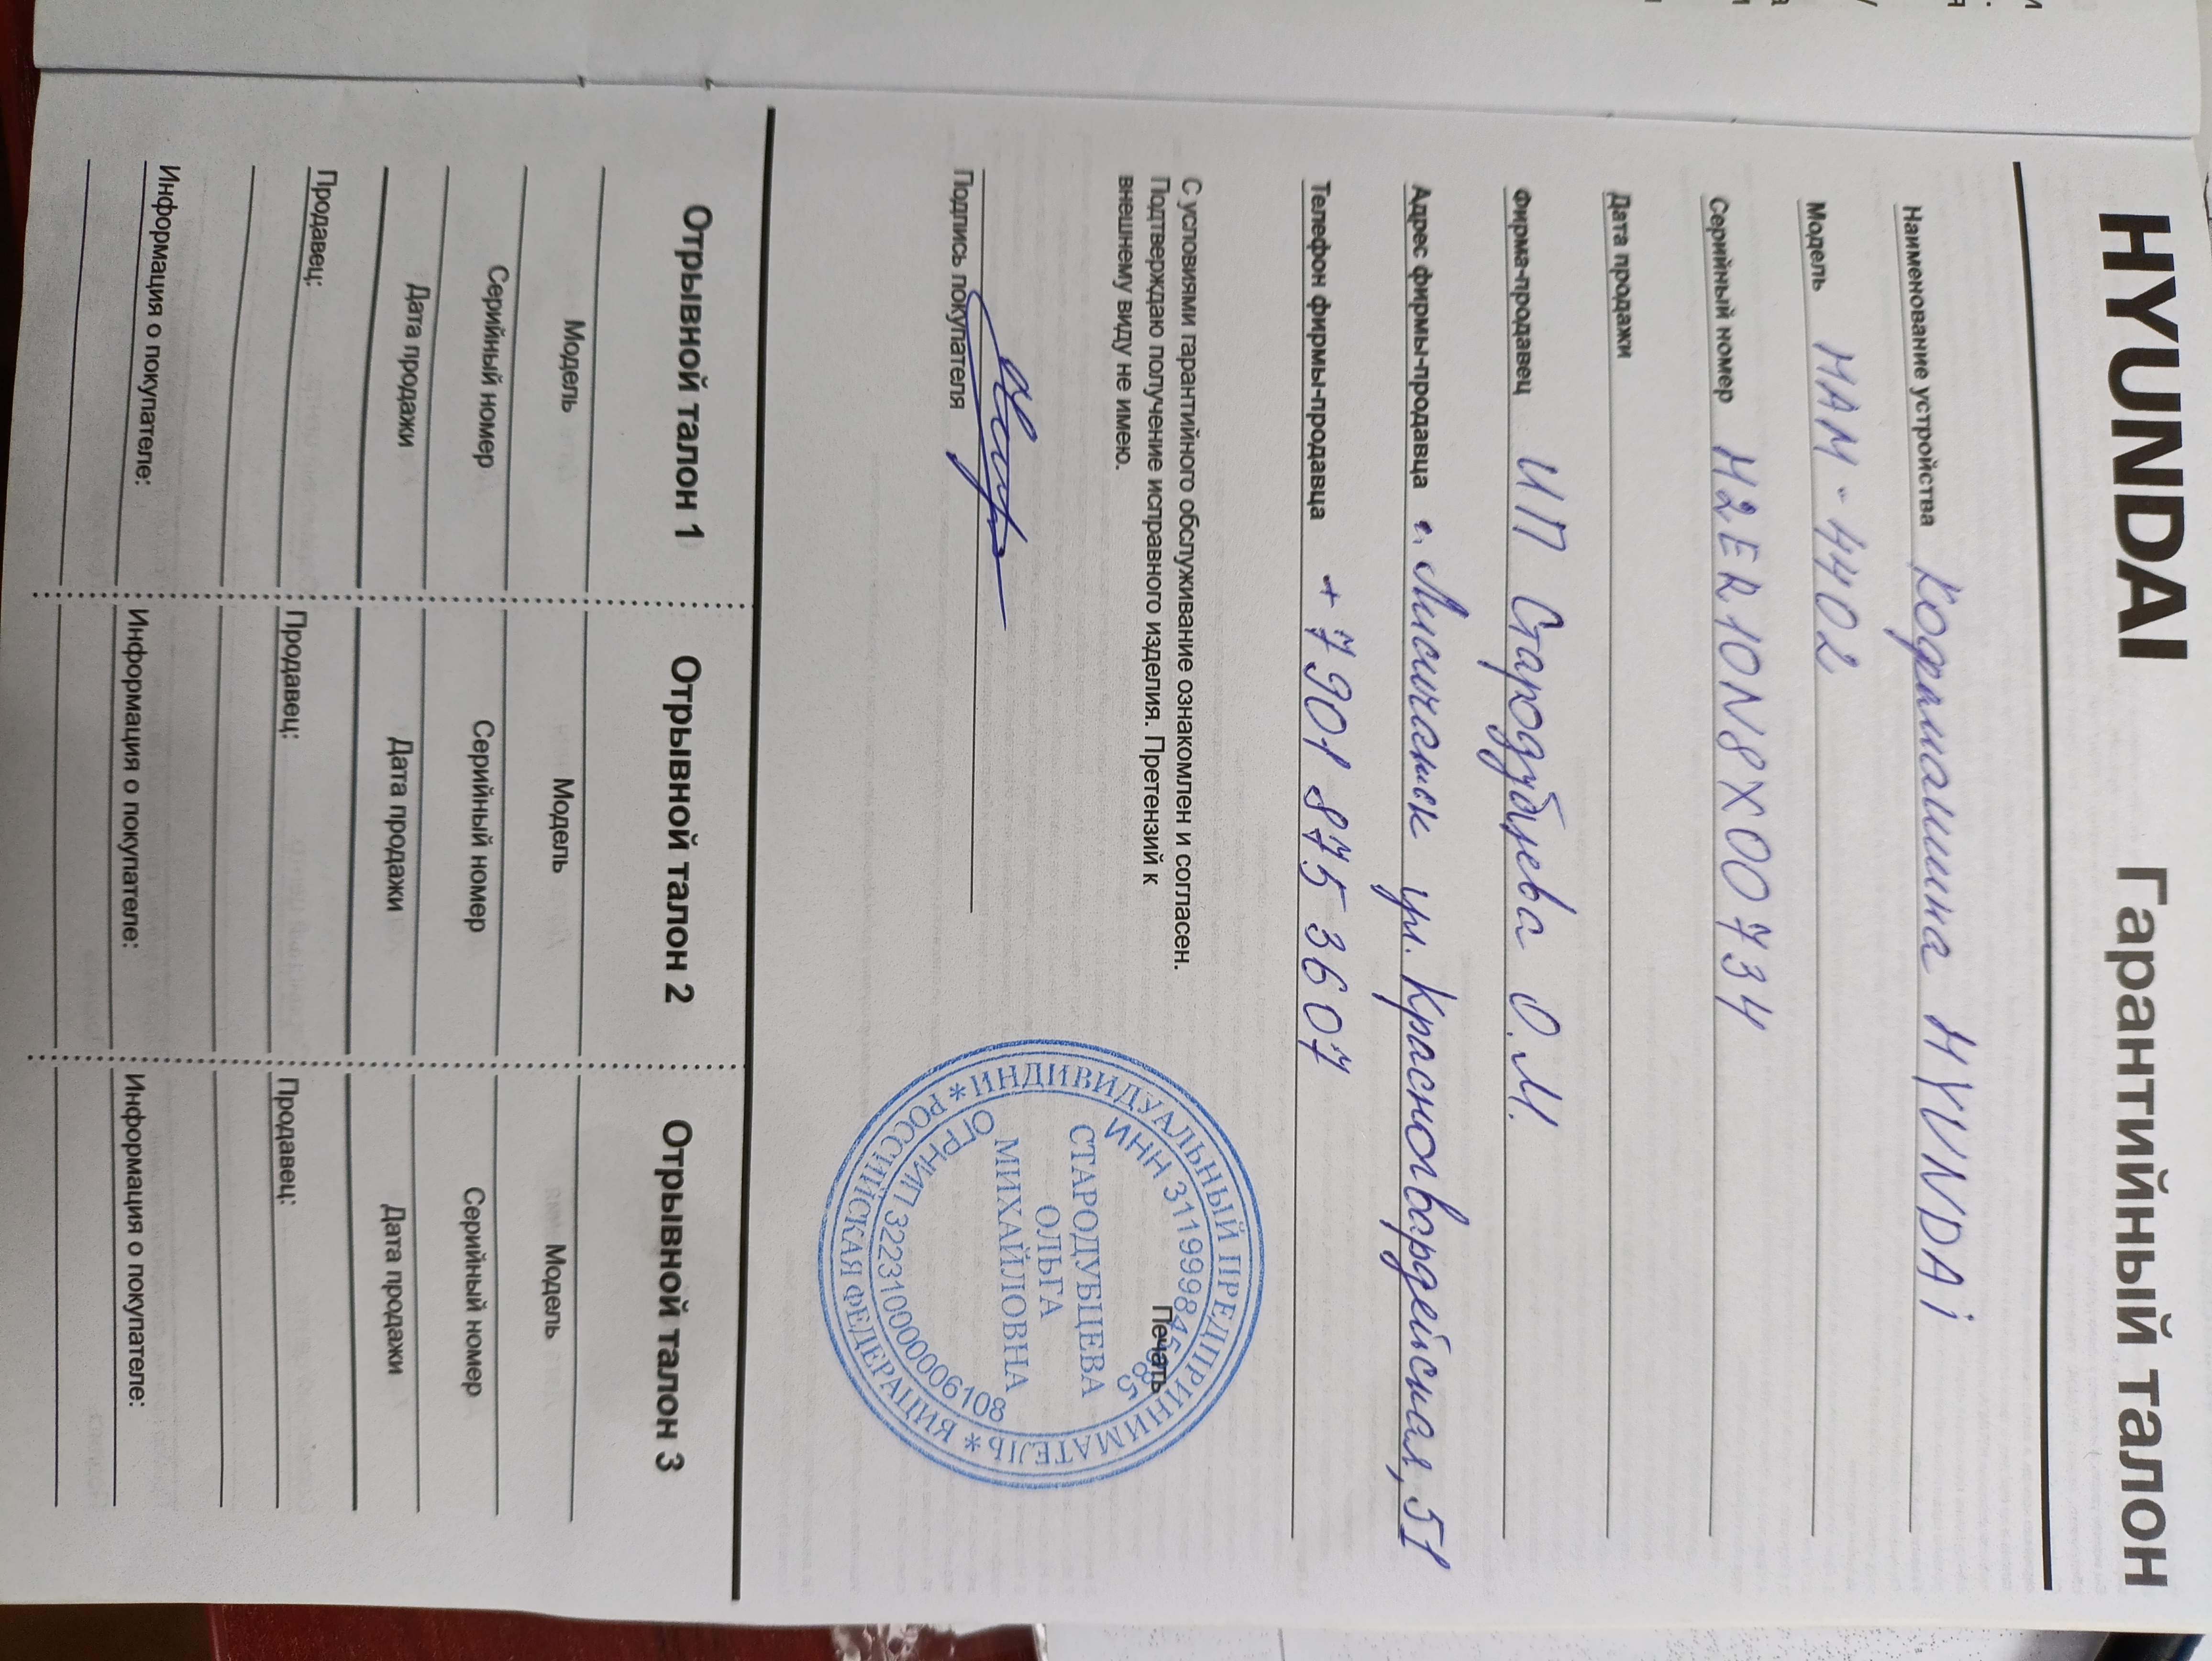 HYUNDAI Гарантийный талон
Наименование устройства Кофемашина HYUNDAi
Модель HAM-4402
Серийный номер H2ER10N8X00734
Дата продажи
Фирма-продавец ИП Стародубцева О.М.
Адрес фирмы-продавца г. Лисичанск ул. Красногвардейская, 51
Телефон фирмы-продавца +7 901 875 3607
С условиями гарантийного обслуживание ознакомлен и согласен.
Подтверждаю получение исправного изделия. Претензий к
внешнему виду не имею.
Печать
Подпись покупателя
* ИНДИВИДУАЛЬНЫЙ ПРЕДПРИНИМАТЕЛЬ * РОССИЙСКАЯ ФЕДЕРАЦИЯ
ИНН 311999845
СТАРОДУБЦЕВА
ОЛЬГА
МИХАЙЛОВНА
ОГРНИП 322310000006108
Отрывной талон 1 Отрывной талон 2 Отрывной талон 3
Модель Модель Модель
Серийный номер Серийный номер Серийный номер
Дата продажи Дата продажи Дата продажи
Продавец: Продавец: Продавец:
Информация о покупателе: Информация о покупателе: Информация о покупателе: